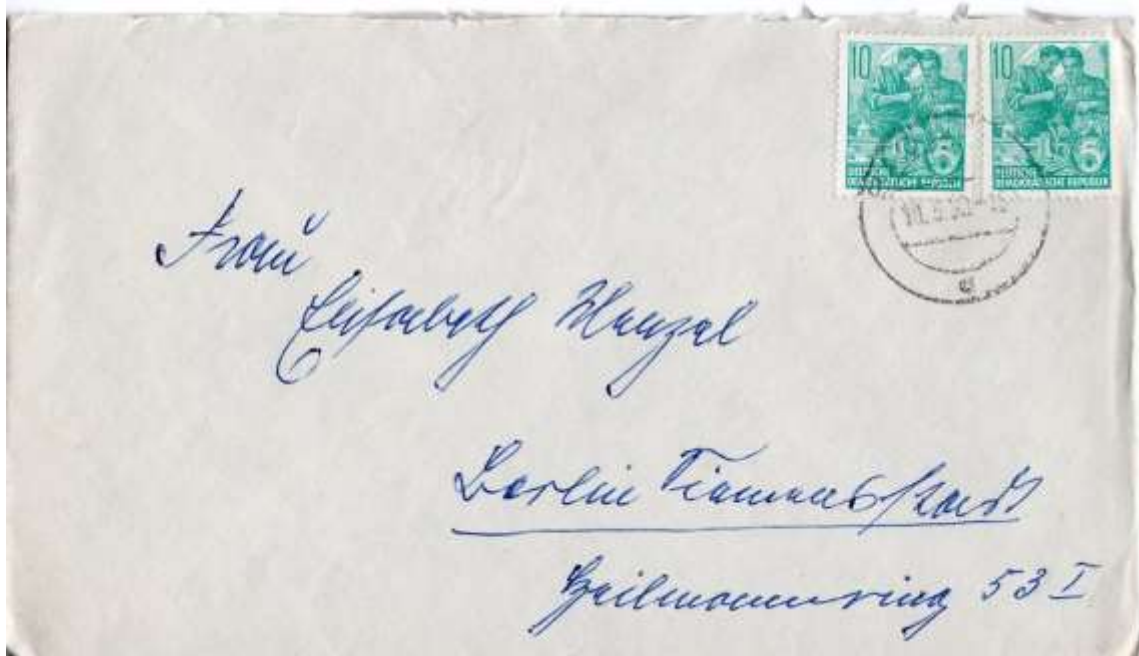 10
DEUTSCHE
DEMOKRATISCHE REPUBLIK
10
DEUTSCHE
DEMOKRATISCHE REPUBLIK
Frau
Elisabeth
Berlin Siemensstadt
Heilmannring 53 I